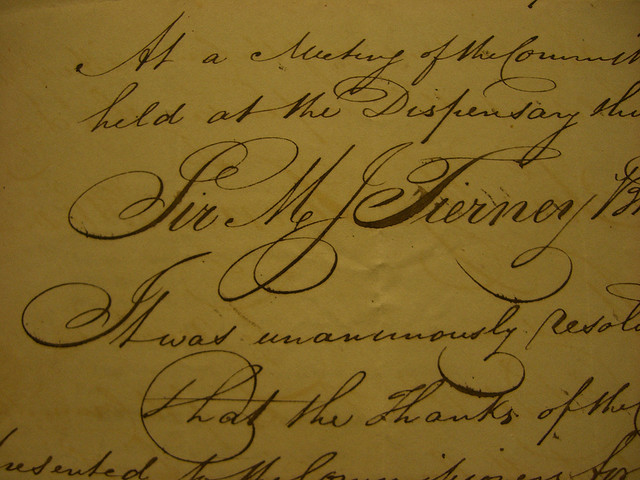 At a Meeting of the Committ
held at the Dispensary this
Sir M J Tierney B
It was unanimously resol
that the Thanks of the
resented to the Commissioners for